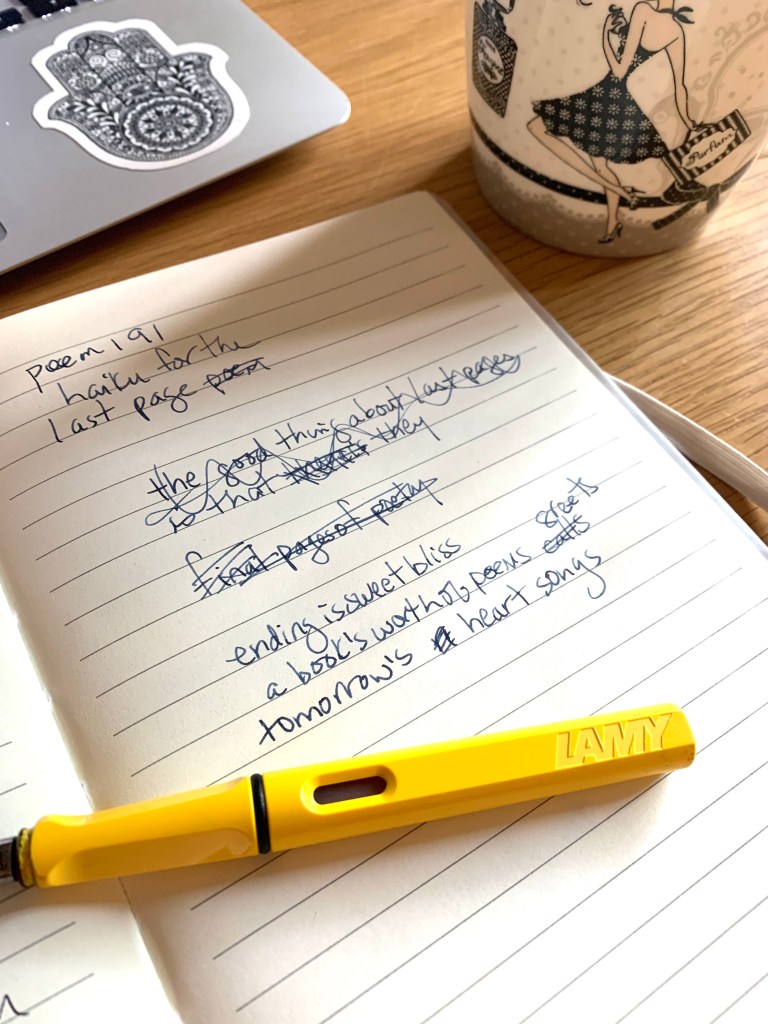 poem 191
haiku for the
last page poem
the good thing about last pages
is that they
final pages of poetry
greets
ending is sweet bliss
a book's worth of poems calls
tomorrow's heart songs
LAMY
Parfum